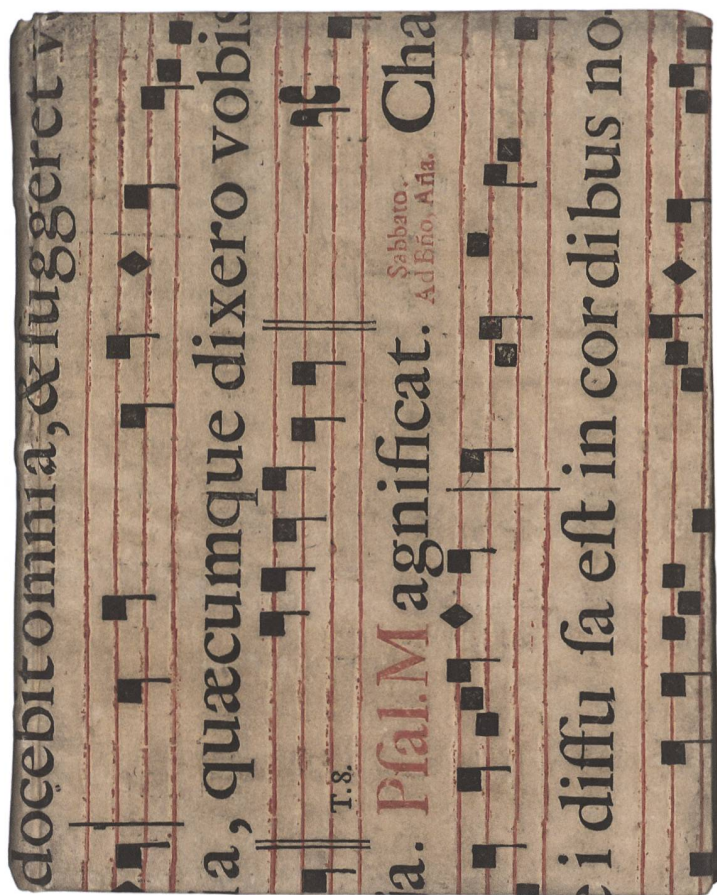 docebit omnia, & ſuggeret v
a, quæcumque dixero vobis
T.8.
ia. Pſal. M agnificat. Sabbato. Ad Bño, Aña. Cha
e i diffu ſa eſt in cor di bus no-